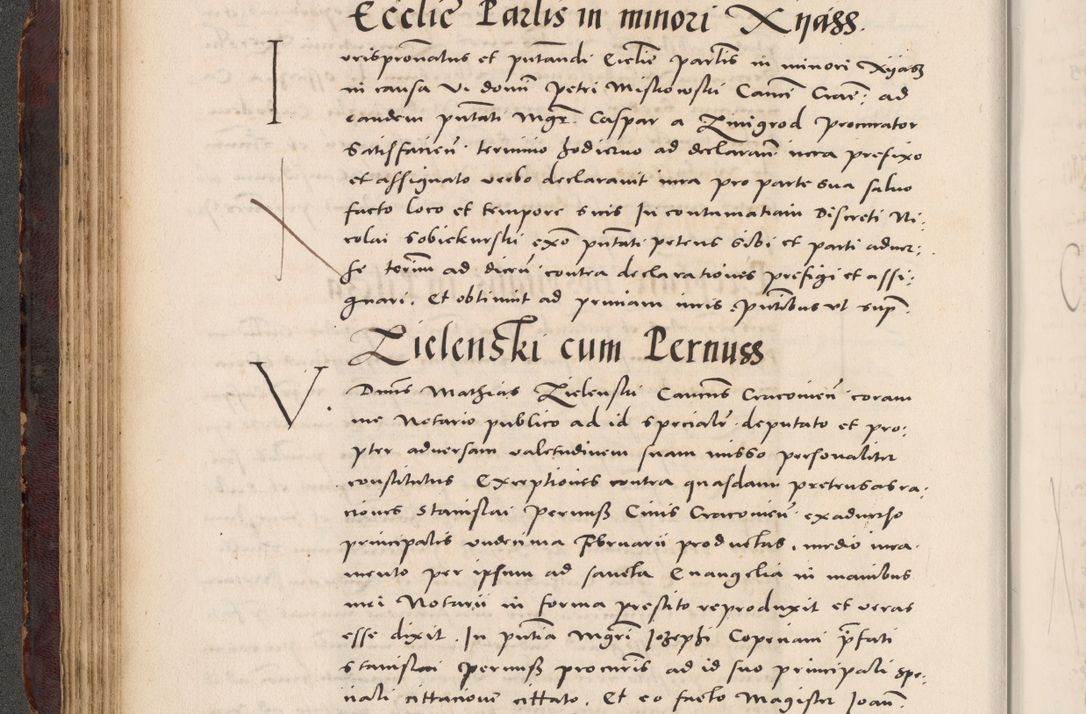 Ecclie Parlis in minori Xyass.
Iurispronatus et putandi Ecclie parlis in minori Xyass
in causa Vi domi Petri Miskowski Canci Crac: ad
eandem putati Mgr. Caspar a Zmigrod procurator
satisfacien. termino hodierno ad declaran iura prefixo
et assignato verbo declaravit iura pro parte sua salvo
facto loco et tempore suis In contumatiam Discreti Ni:
colai Sobiekurski exo putati petens sibi et parti adver:
se termi ad dicen contra declarationes prefigi et assi:
gnari. Et obtinuit ad primam iuris. putibus ut sup.
Zielenski cum Pernuss
V. Dnus Mathias Zielenski Canus Cracovien coram
me Notario publico ad id specialr deputato et pro:
pter adversam valetudinem suam misso personaliter
constitutus Exceptiones contra quasdam pretensas ra:
ciones Stanislai Pernuss Civis Cracovien. ex adverso
principalis undecima Februarii productas, medio iura
mento per ipsum ad sancta Evangelia in manibus
mei Notarii in forma prestito reproduxit et veras
esse dixit. In putia Mgri Iozephi Copriani pfati
Stanislai Pernuss procuris ad id suo principali spe:
tiali cittatione cittato. Et eo facto Magister Ioan.